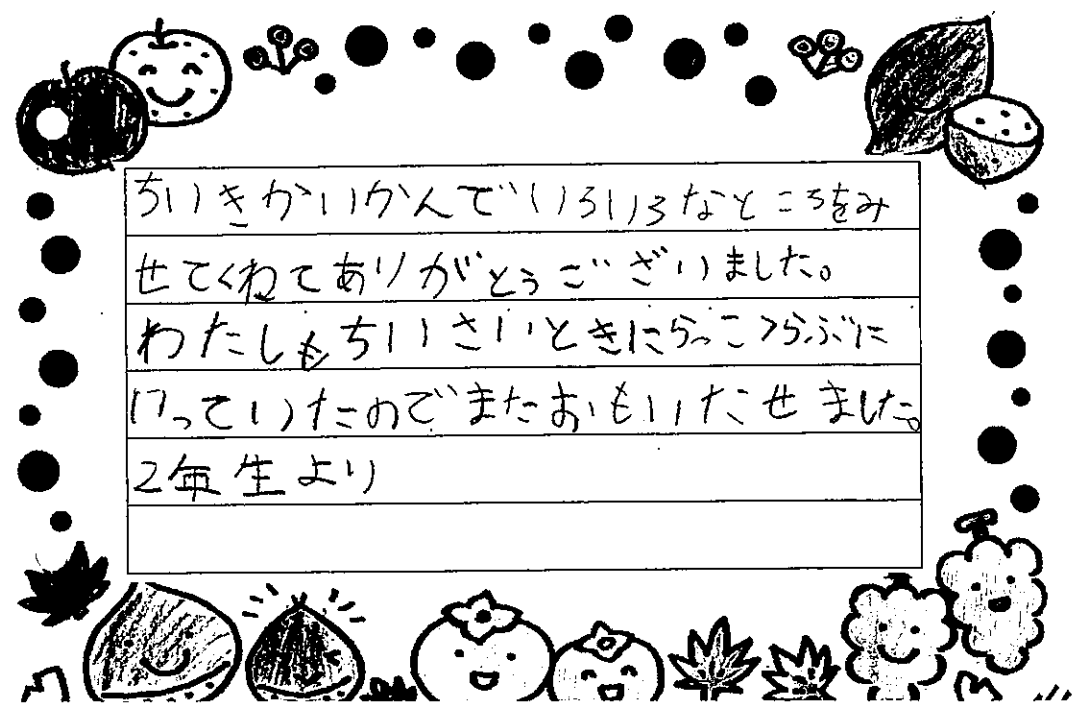 ちいきかいかんでいろいろなところをみ
せてくねてありがとうございました。
わたしもちいさいときにらっこくらぶに
けっていたのでまたおもいたせました。
2年生より